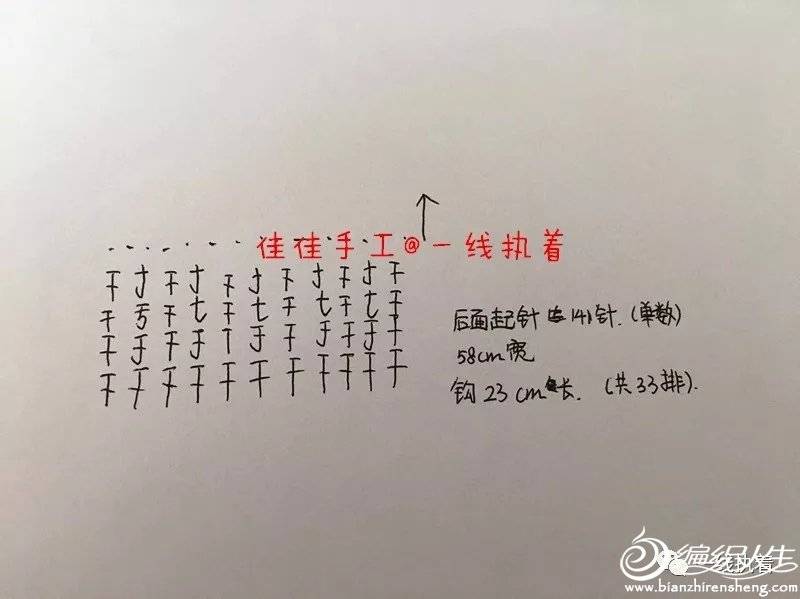 佳佳手工@一线执着
后面起针141针.(单数)
58cm宽
钩23cm长.(共33排).
编织人生
一线执着
www.bianzhirensheng.com